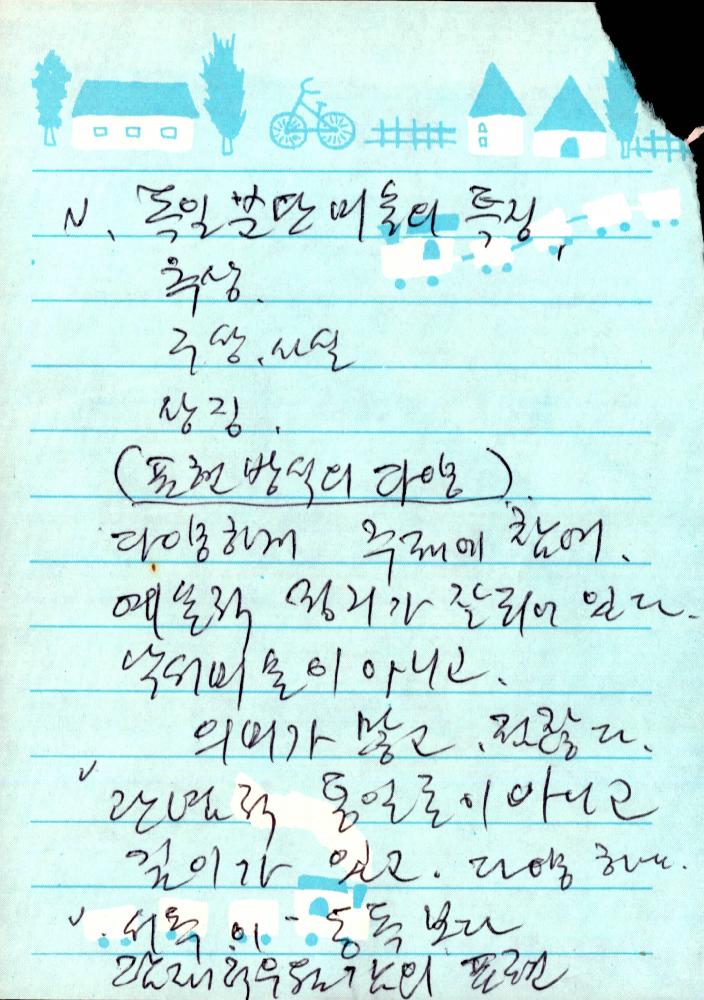 N. 독일 분단 미술의 특징,
추상.
구상. 사실
상징.
(표현 방식의 다양).
다양하게 주제에 참여.
예술적 정리가 잘되어 있다.
낙서미술이 아니고.
의미가 많고.
√ 관념적 통일론이 아니고
깊이가 있고. 다양하다.
√. 서독이 - 동독보다
표현